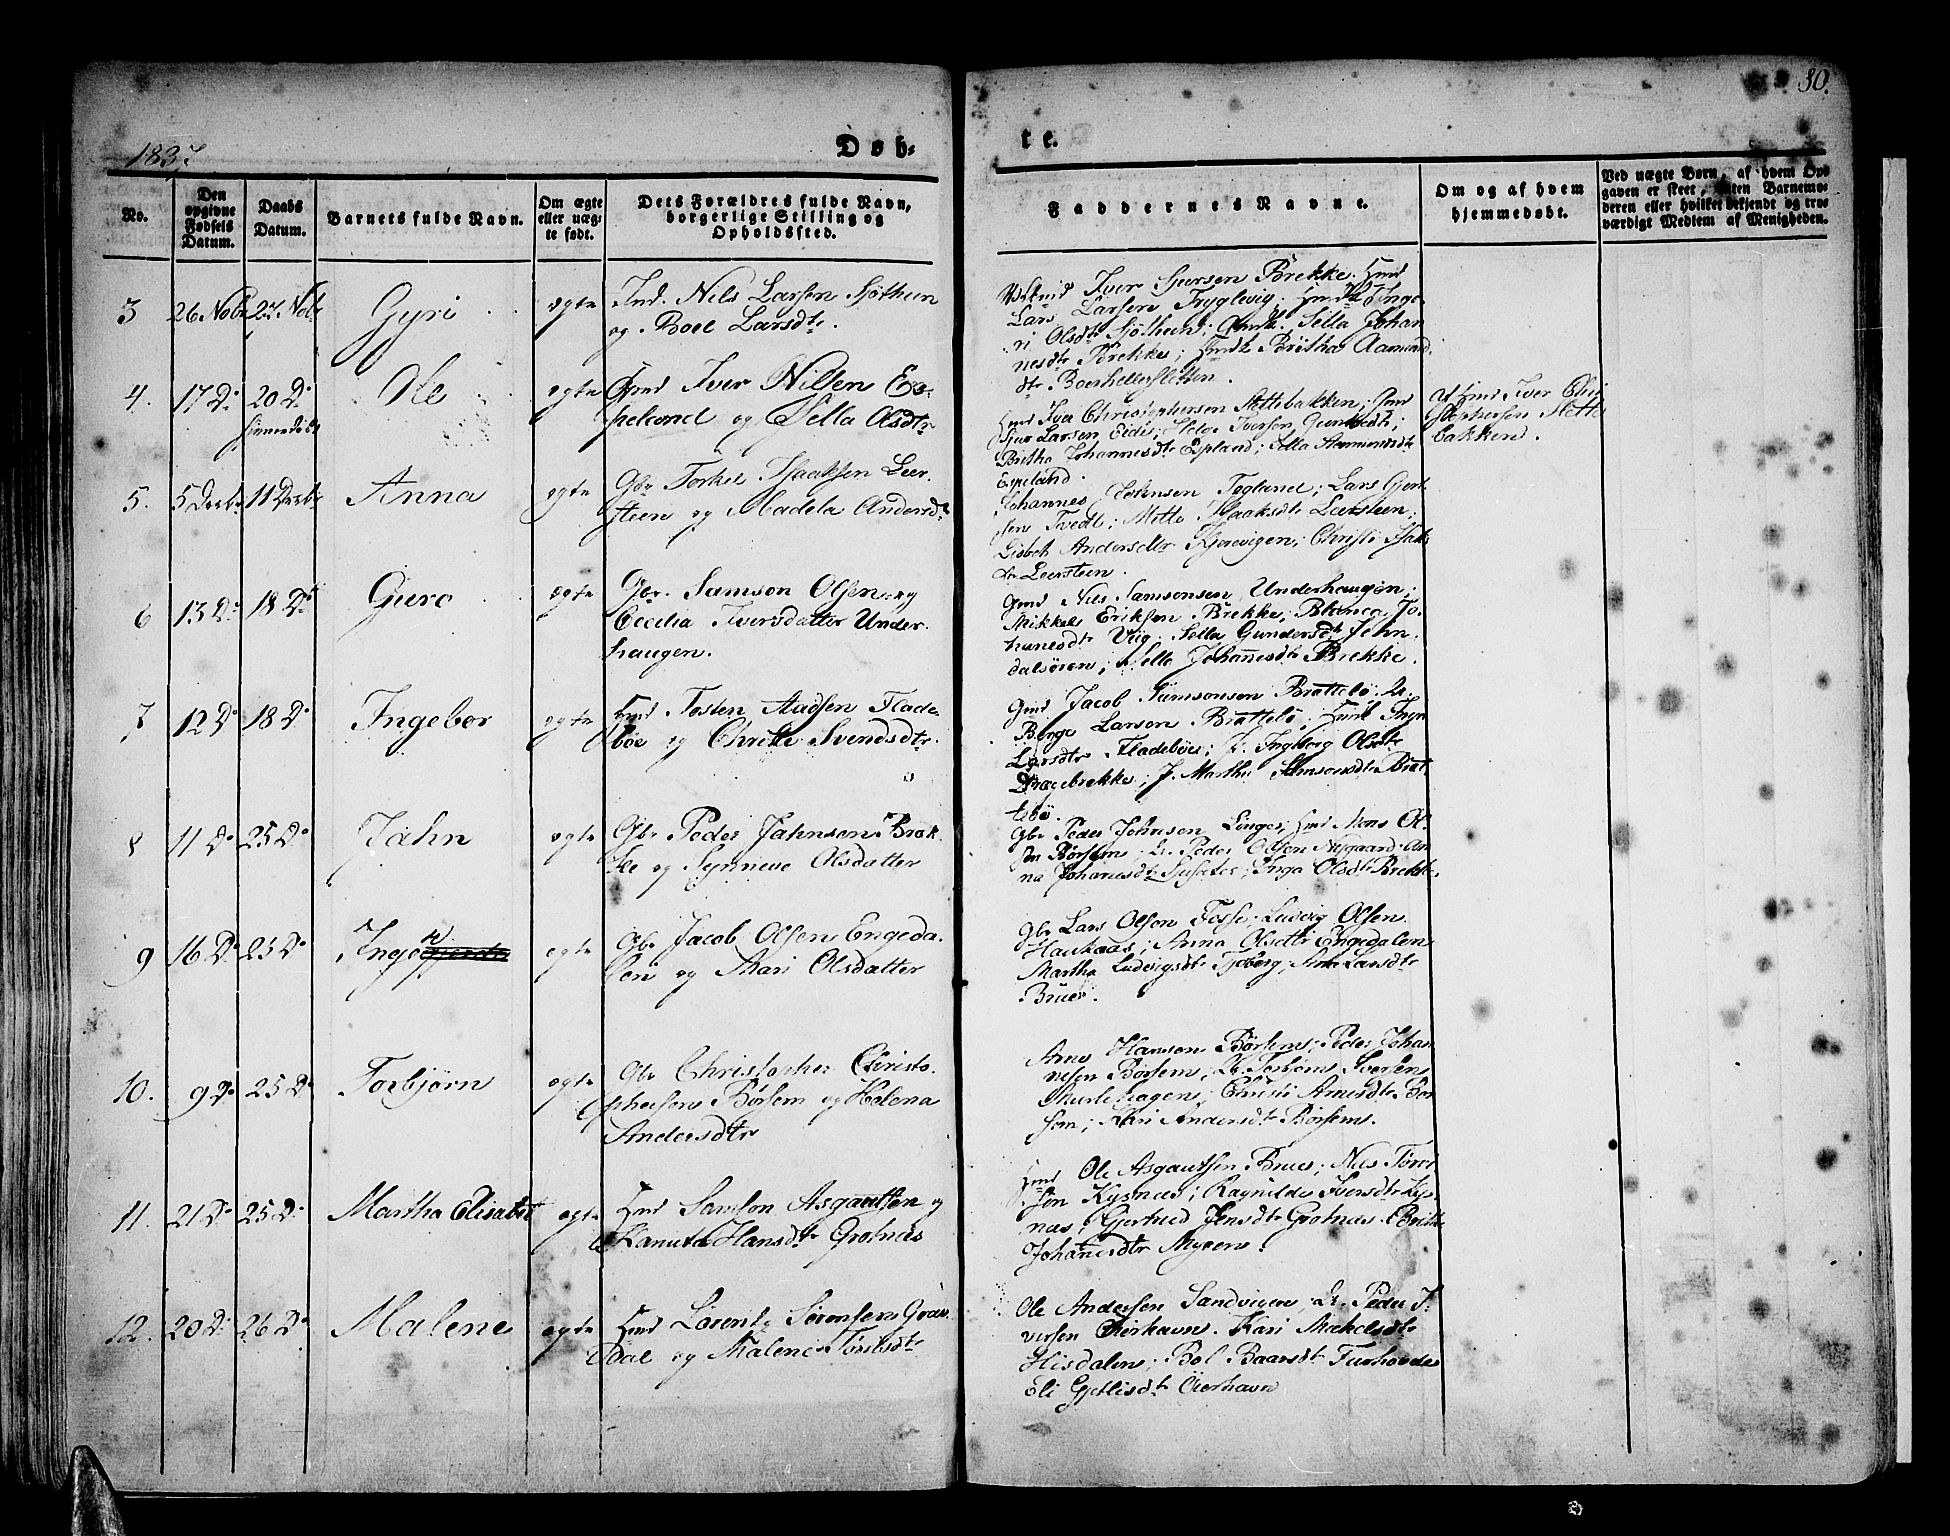 1837
Døb-
te.
30.
No.
Den
opgivne
Fødsels
Datum.
Daabs
Datum.
Barnets fulde Navn.
Om ægte
eller uæg-
te født.
Dets Forældres fulde Navn,
borgerlige Stilling og
Opholdssted.
Faddernes Navne.
Om og af hvem
hjemmedøbt.
Ved uægte Børn, af hvem Op-
gaven er skeet, enten Barnemo-
deren eller hvilket bekjendt og tro-
værdigt Medlem af Menigheden.
3 26 Nobr 27 Nobr Gyri ægte Ind. Nils Larsen Sjøthun
og Boel Larsdtr.
Iver Sjursen Brekke. Hmd
Lars Larsen Tryglevig; Hmdk Inge-
ri Olsdtr Sjøthun; Sella Johan
nesdtr Brekke; Hmdk Britha Aamund
dtr Boerhellesletten.
4. 17 Do 20 Do Ole ægte Hmd Iver Nilsen Es-
pelund og Sella Olsdtr
hjemmedøbt
Hmd Iver Christophersen Slettebakken; Hmd
Sjur Larsen Eide; Helge Iversen
Britha Johannesdtr Espeland; Sella Aamundsdtr
Espeland.
Af Hmd Iver Chri
stophersen Slette
bakken.
5. 5 Decbr 11 Decbr Anna ægte Gbr Torkel Isaaksen Leer-
steen og Madela Andersdtr
Johannes Johnsen Tegland; Lars Gjert
sen Tvedt; Mette Isaaksdtr Leersteen;
Lisbeth Andersdtr Kjerevigen; Christi Isaks
dr Leersteen.
6 13 Do 18 Do Guro ægte Gbr. Samson Olsen og
Cecilia Iversdatter Under-
haugen.
Gmd Nils Samsonsen Underhaugen;
Mikkel Eriksen Brekke; Blanca Jo-
hanesdtr Viig; Sella Gundersdtr John
dalsøren; Sella Johannesdtr Brekke.
7 12 Do 18 Do Ingebor ægte Hmd Tosten Aadsen Flade-
bøe og Christi Svendsdtr.
Gmd Jacob Samsonsen Brattebø. U.
Børge Larsen Brattebø; Hmdk Ingr
Larsdtr Fladebøe; P. Ingborg Olsdtr
Dragebrekke; J. Martha Samsonsdtr Brat
tebø.
8 11 Do 25 Do Jahn ægte Gbr Peder Jahnsen Brek-
ke og Synneve Olsdatter
Gbr Peder Johnsen Linge; Hmd Mons Ol-
sen Børsem; U. Peder Olsen Nygaard; An
na Johanesdtr; Inga Olsdtr Brekke.
9 16 Do 25 Do Inge ægte Gbr Jacob Olsen Engeda-
len og Mari Olsdatter
Gbr Lars Olsen Fosse; Ludvig Olsen
Haukaas; Anna Olsdtr Engedalen
Martha Ludvigsdtr; Anna Larsdtr
Brue.
10. 9 Do 25 Do Torbjørn ægte Gbr Christopher Christo-
phersen Børsem og Helena
Andersdtr
Arne Hansen Børsem; Peder Johan
nesen Børsem; U. Torbjørn Iversen
hagen; Christi Arnesdtr Bør
sem; Kari Andersdtr Børsem.
11. 21 Do 25 Do Martha Elisabet ægte Hmd Samson Asgautsen og
Kanuta Hansdtr Grotnæs
Hmd Ole Asgautsen Brue; Nils Torri
sen Kysnæs; Ragnilde Iversdtr Kys-
næs; Gjertrud Jensdtr Grotnæs. Britta
Johanesdtr Myren.
12. 20 Do 26 Do Malene ægte Hmd Lorentz Sørensen Græs-
dal og Malene Tørrisdtr
Ole Andersen Sandvigen. U. Peder I-
versen Øierhavn. Kari Mikelsdtr
Hisdalen; Bol Baarsdtr Furhovde
Eli Gjetlisdtr Øierhavn